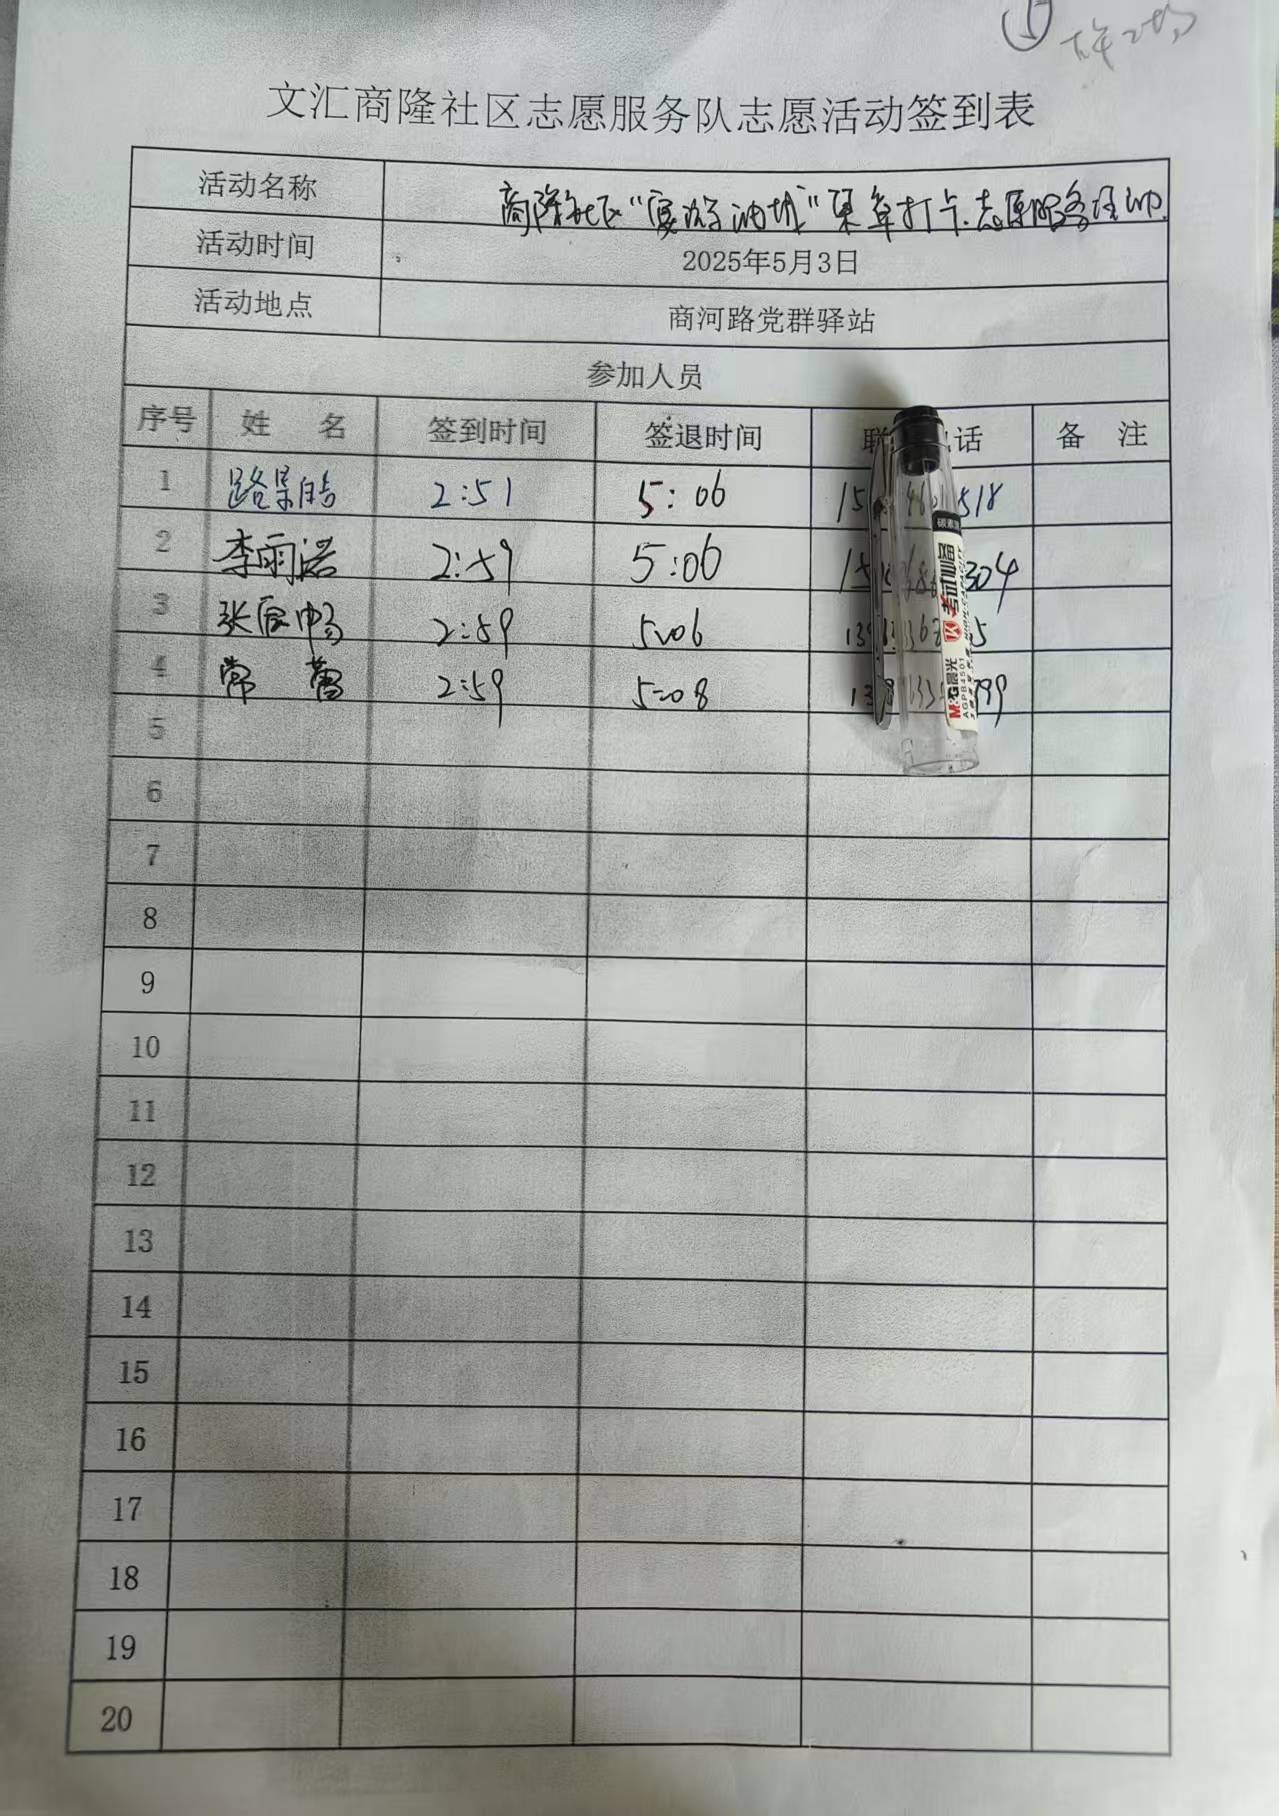 ⑤
文汇商隆社区志愿服务队志愿活动签到表
活动名称 商隆社区“夏游油城”集章打卡志愿服务活动.
活动时间 2025年5月3日
活动地点 商河路党群驿站
参加人员
序号 姓 名 签到时间 签退时间 联 话 备 注
1 路景皓 2:51 5:06 518
2 李雨诺 2:59 5:06 304
3 张宸畅 2:59 5:06 5
4 常蕾 2:59 5:08 799
5
6
7
8
9
10
11
12
13
14
15
16
17
18
19
20
考试必备
M&G晨光
AGPB4501